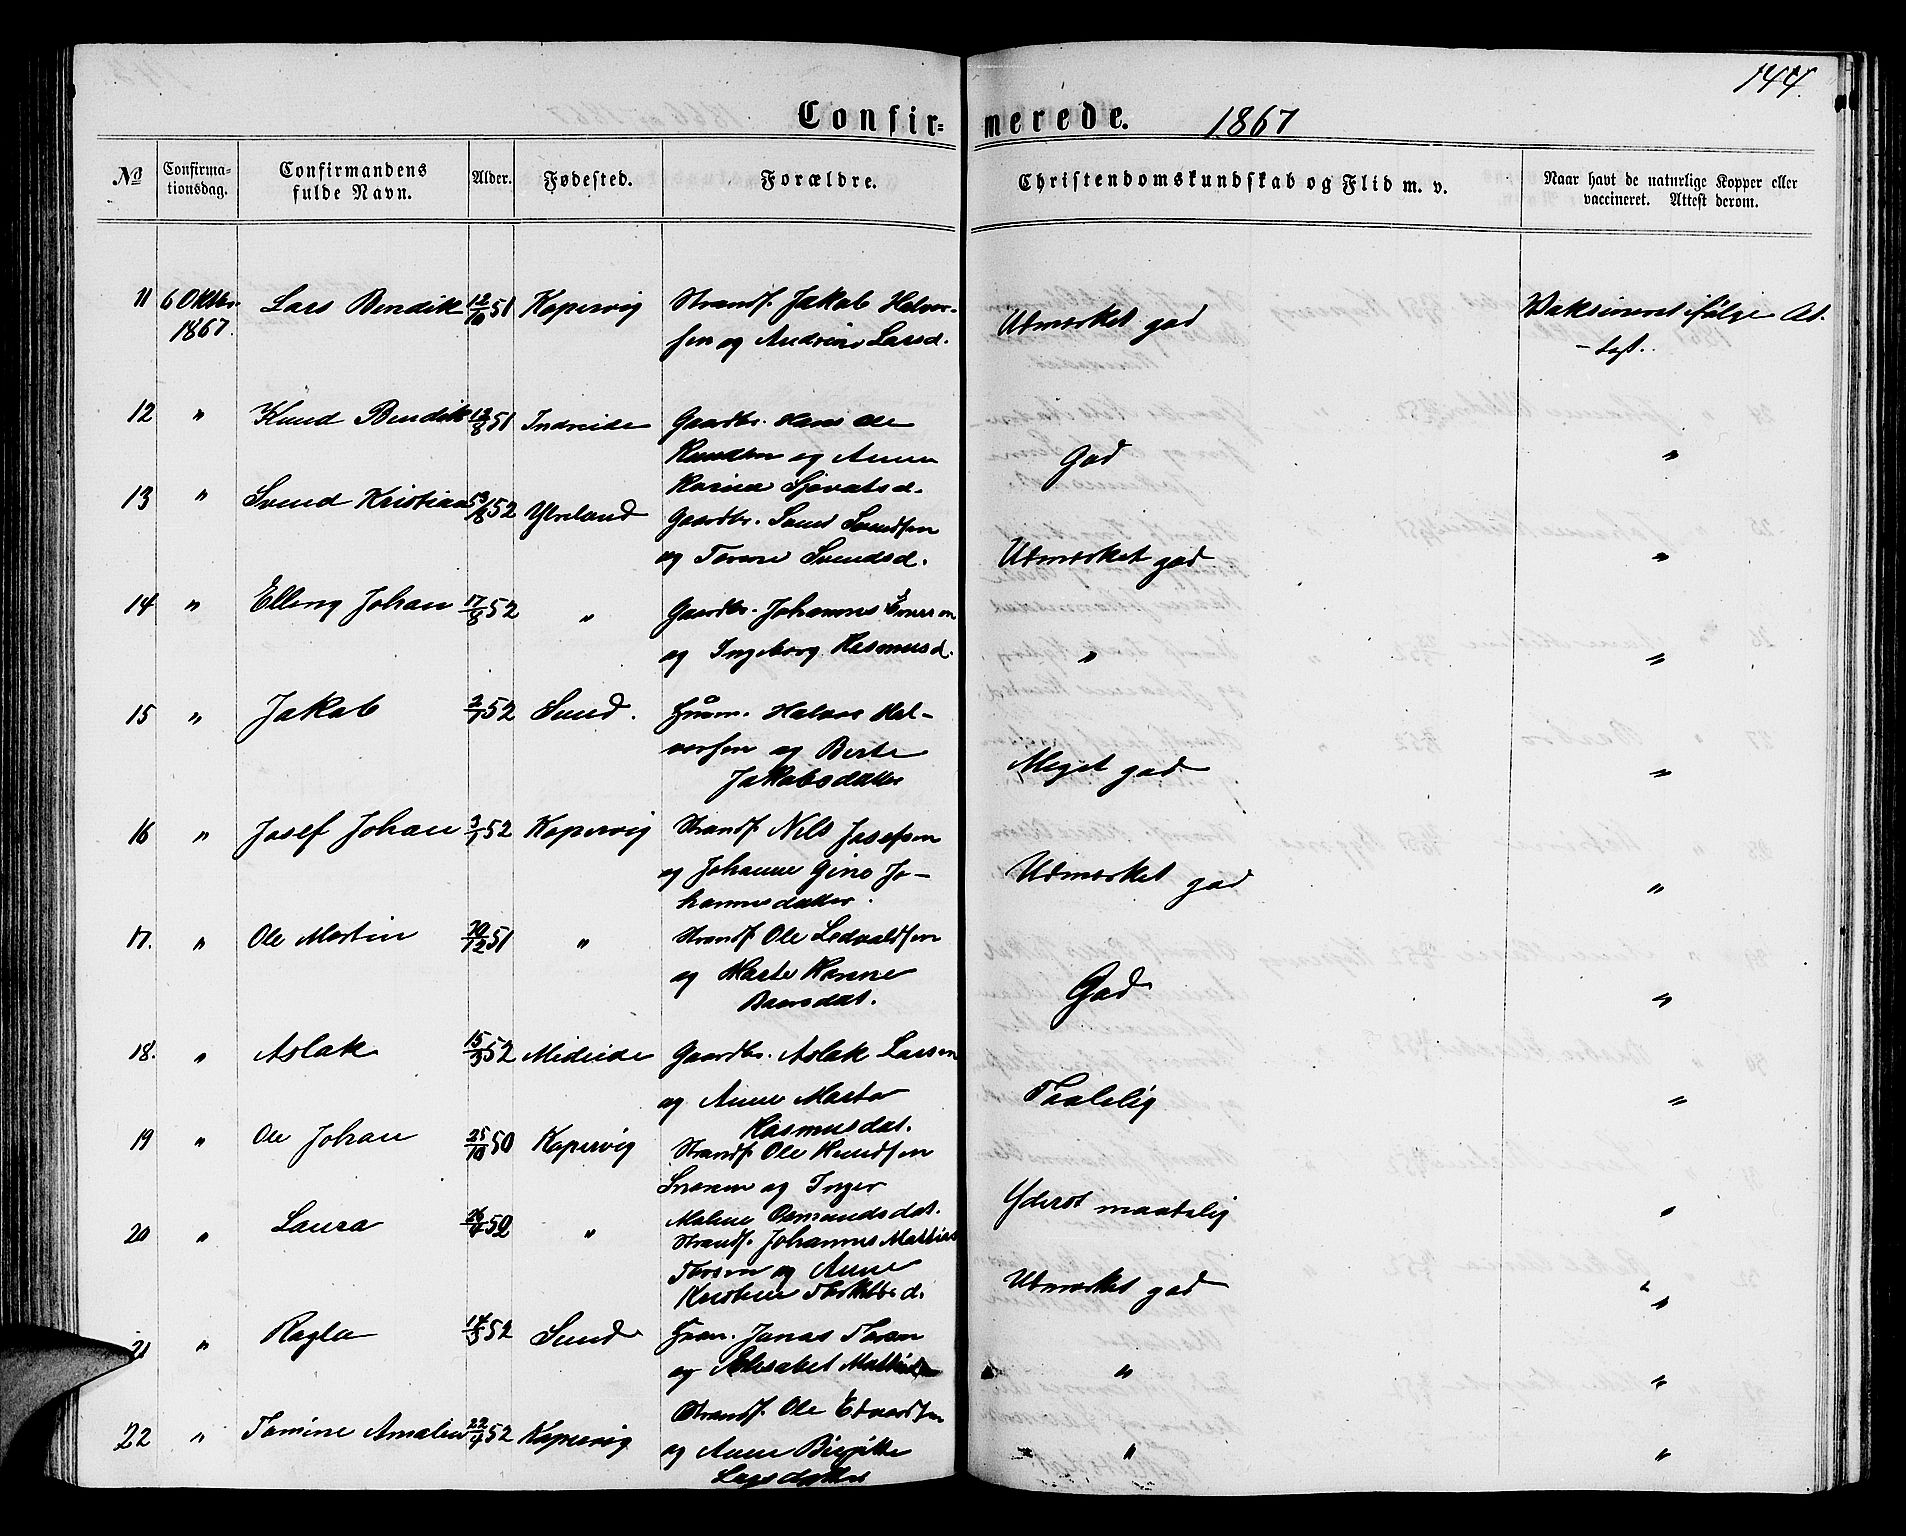 144.
Confirmerede. 1867
No Confirmationsdag. Confirmandens fulde Navn. Alder. Fødested. Forældre. Christendomskundskab og Flid m. v. Naar havt de naturlige Kopper eller vaccineret. Attest derom.
11 6 Oktbr. 1867. Lars Bendik 12/10 51 Kopervig Strandf. Jakob Halvor-
sen og Andrine Larsd. Udmærket god Vaksineret ifølge At-
-test.
12 " Knud Bendik 12/8 51 Indreide Gaardbr. Hans Ole
Knudsen og Anna God "
Karina Sjovatsd.
13 " Svend Kristian 52 Ytreland Gaardbr. Svend Svendsen
og Torine Svendsd. Udmærket god "
14 " Elling Johan 17/8 52 " Gaardbr. Johannes
og Ingeborg Rasmusd. " "
15 " Jakob 2/1 52 Sund. Husm. Halvor Hal-
vorsen og Berte
Jakobsdatter Meget god "
16 " Josef Johan 3/1 52 Kopervig Strandf. Nils Josefsen
og Johanne Gine Jo-
hannesdatter. Udmærket god "
17. " Ole Martin 30/12 51 " Strandf. Ole
og Marte Karine
Baarsdat. God "
18. " Aslak 15/3 52 Mideide Gaardbr. Aslak Larsen
og Anne Marta
Rasmusdat. Taalelig "
19 " Ole Johan 25/10 50 Kopervig Strandf. Ole Knudsen
og Inger
Malene Osmundsdat. Yderst maatelig "
20 " Laura 50 " Strandf. Johannes Mathias
og Anne
Kristine d. Udmærket god "
21 " Ragla 52 Sund Jonas
og Elisabet " "
22 " Tomine Amalie 22/4 52 Kopervig Strandf. Ole Edvardsen
og Anne Birgitte
Larsdatter " "